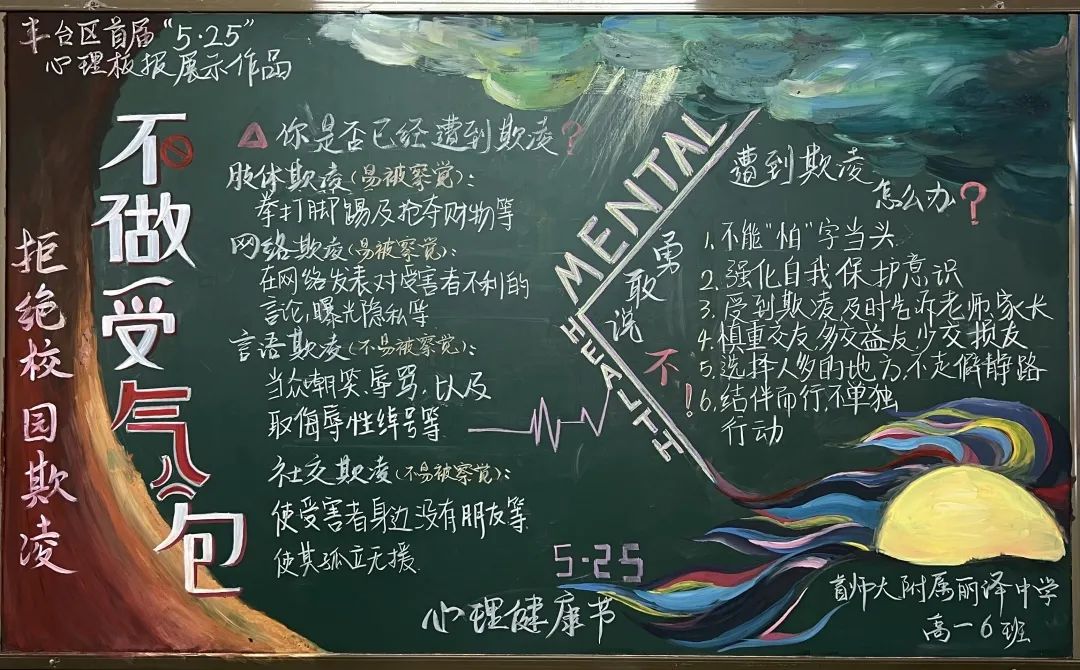 丰台区首届“5·25”
心理板报展示作品
不做受气包
拒绝校园欺凌
你是否已经遭到欺凌?
肢体欺凌(易被察觉):
拳打脚踢及抢夺财物等
网络欺凌(易被察觉):
在网络发表对受害者不利的
言论,曝光隐私等
言语欺凌(不易被察觉):
当众嘲笑,辱骂,以及
取侮辱性绰号等
社交欺凌(不易被察觉):
使受害者身边没有朋友等
使其孤立无援
MENTAL
HEALTH
勇敢说不!
遭到欺凌
怎么办?
1.不能“怕”字当头
2.强化自我保护意识
3.受到欺凌及时告诉老师,家长
4.慎重交友,多交益友,少交损友
5.选择人多的地方,不走僻静路
6.结伴而行,不单独
行动
5·25
心理健康节
首师大附属丽泽中学
高一6班